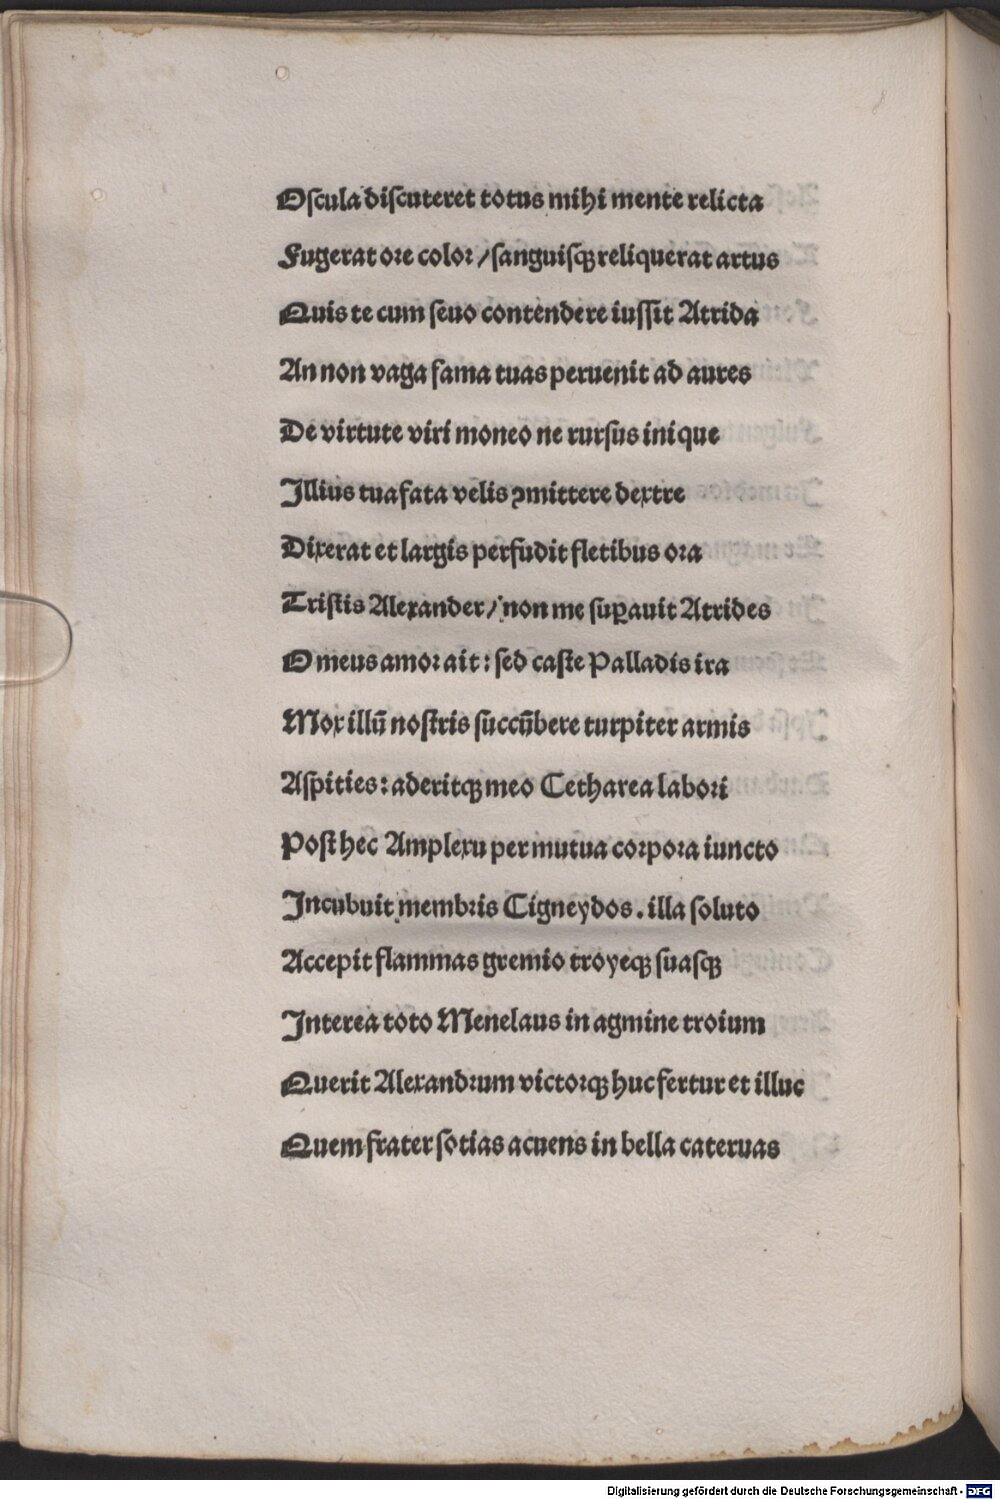 Oſcula diſcuteret totus mihi mente relicta
Fugerat ore coloꝛ / ſanguiſqꝫ reliquerat artus
Quis te cum ſeuo contendere iuſſit Atrida
An non vaga fama tuas peruenit ad aures
De virtute viri moneo ne rurſus inique
Illius tua fata velis ꝯmittere dextre
Dixerat et largis perfudit fletibus oꝛa
Triſtis Alexander / non me ſuꝑauit Atrides
O meus amoꝛ ait : ſed caſte Palladis ira
Mox illū noſtris ſuccūbere turpiter armis
Aſpities : aderitqꝫ meo Cetharea laboꝛi
Poſt hec Amplexu per mutua coꝛpoꝛa iuncto
Incubuit membꝛis Cigneydos . illa ſoluto
Accepit flammas gremio troyeqꝫ ſuaſqꝫ
Interea toto Menelaus in agmine troium
Querit Alexandꝛum victoꝛqꝫ huc fertur et illuc
Quem frater ſotias acuens in bella cateruas
Digitalisierung gefördert durch die Deutsche Forschungsgemeinschaft - DFG